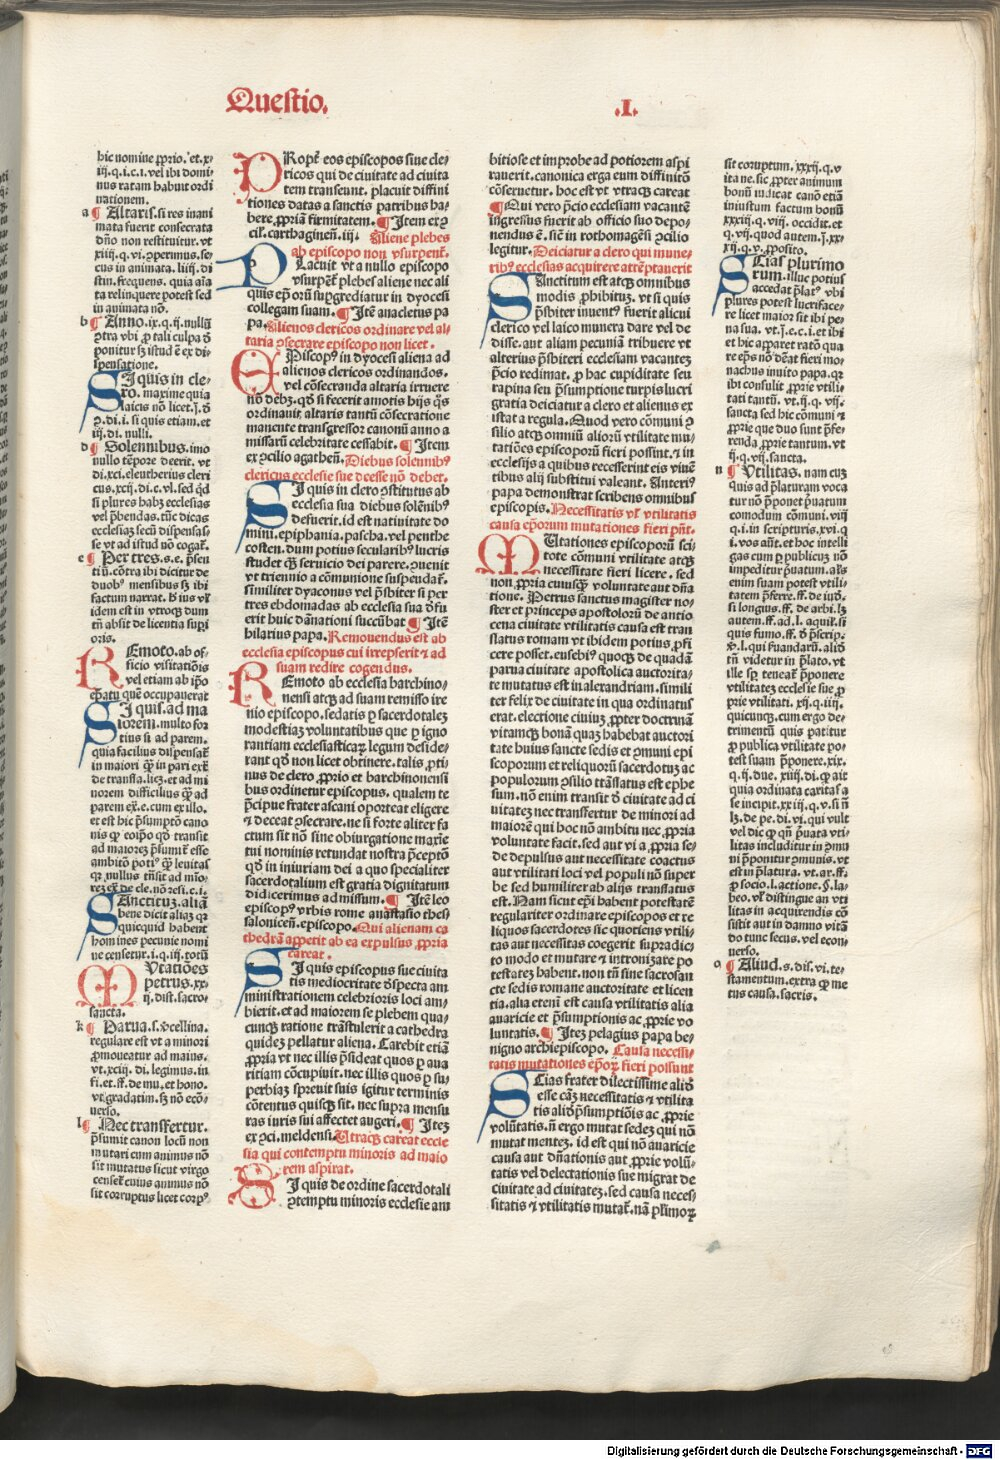 Questio. .I.
hic nomine ꝓprio. et. x-
iij. q. i. c. i. vel ibi domi-
nus ratam habuit ordi
nationem.
a ¶ Altaris. si res inani
mata fuerit consecrata
dño non restituitur. vt
in animata nõ.
b ¶ Anno. ix. q. ij. nullꝰ
spensatione.
SI quis in cle-
ro. maxime quia
laicis nõ licet. j. õ
iij. di. nulli.
d ¶ Solennibus. imo
nullo tẽpore deerit. vt
di. xci. eleutherius cleri
cus. xcij. di. c. vl. sed qđ
si plures habꝫ ecclesias
vel p̃bendas. tũc dicas
ecclesiaꝫ secũ dispensas-
se vt ad istud nõ cogat̃.
e ¶ Per tres. s. e. p̃sen
ti ũ. cõtra ibi dicitur de
duobꝰ mensibus sꝫ ibi
idem est in vtroqꝫ dum
tñ absit de licentia supi
oris.
REmoto. ab of-
ficio visitatiõis
vel etiam ab ip̃o
ep̃atu quẽ occupauerat
SI quis. ad ma
iorem. multo for
tius si ad parem.
quia facilius dispensat̃
in maiori qꝫ in pari ext̃
de transla. licꝫ. et ad mi
norem difficilius qꝫ ad
parem ex̃. e. cum ex illo.
et est hic p̃sumptõ cano
nis qꝫ eoip̃o qđ transit
ad maiorez p̃sumit̃ esse
SAnctituꝫ. aliã
bene dicit aliaꝫ qꝛ
quicquid habent
homines pecunie nomi
ne censetur. i. q. iij. totũ
MVtatiões
petrus. xx-
ij. dist. sacro
sancta.
k ¶ Parua. s. ỹcellina.
regulare est vt a minori
ꝓmoueatur ad maius.
vt. xciij. di. legimus. in
fi. et. ff. de mu. et hono.
vt. gradatim. sꝫ nõ ecõ-
uerso.
l ¶ Nec transfertur.
p̃sumit canon locũ non
mutari cum animus nõ
sit mutatus sicut virgo
censet̃ cuius animus nõ
sit corruptus licet corpꝰ
PRopt̃ eos episcopos siue cle-
ricos qui de ciuitate ad ciuita
tem transeunt. placuit diffini
tiones datas a sanctis patribus ha-
bere. ꝓpriã firmitatem. ¶ Item ex ꝯ
cil. carthaginen. iij. Aliene plebes
ab episcopo non vsurpent̃.
PLacuit vt a nullo episcopo
vsurpent̃ plebes aliene nec ali
quis ep̃orũ supgrediatur in dyocesi
collegam suam. ¶ Itẽ anacletus pa
pa. Alienos clericos ordinare vel al-
taria ꝯsecrare episcopo non licet.
EPiscopꝰ in dyocesi aliena ad
alienos clericos ordinandos.
vel cõsecranda altaria irruere
nõ debꝫ. qđ si fecerit amotis hijs q̃s
ordinauit altaris tantũ cõsecratione
manente transgressor canonũ anno a
missarũ celebritate cessabit. ¶ Item
ex ꝯcilio agatheñ. Diebus solennibꝰ
clericus ecclesie sue deesse nõ debet.
SI quis in clero ꝯstitutus ab
ecclesia sua diebus solẽnibꝰ
defuerit. id est natiuitate do
mini. epiphania. pascha. vel penthe
costen. dum potius secularibꝰ lucris
studet qꝫ seruicio dei parere. ꝯuenit
vt triennio a cõmunione suspendat̃.
similiter dyaconus vel p̃sbiter si per
tres ebdomadas ab ecclesia sua ðfu
erit huic dãnationi succũbat ¶ Itẽ
hilarius papa. Remouendus est ab
ecclesia episcopus cui irrepserit ⁊ ad
suam redire cogendus.
REmoto ab ecclesia barchino-
nensi atqꝫ ad suam remisso ire
nio episcopo. sedatis p sacerdotaleꝫ
modestiaꝫ voluntatibus que p igno
rantiam ecclesiasticaꝫ legum deside-
rant qđ non licet obtinere. talis ꝓti-
nus de clero ꝓprio et barchinonensi
bus ordinetur episcopus. qualem te
p̃cipue frater ascani oporteat eligere
⁊ deceat ꝯsecrare. ne si forte aliter fa
ctum sit nõ sine obiurgatione maxie
tui nominis retundat nostra p̃ceptõ
qđ in iniuriam dei a quo specialiter
sacerdotalium est gratia dignitatum
didicerimus admissum. ¶ Itẽ leo
episcopꝰ vrbis rome anastasio thes
salonicen̄. episcopo. Qui alienam ca
thedrã appetit ab ea expulsus ꝓpria
careat.
SI quis episcopus siue ciuita
tis mediocritate ðspecta am
ministrationem celebrioris loci am-
bierit. et ad maiorem se plebem qua-
cunqꝫ ratione trãstulerit a cathedra
quideꝫ pellatur aliena. Carebit etiã
ꝓpria vt nec illis p̃sideat quos p aua
ritiam cõcupiuit. nec illis quos p su-
perbiaꝫ spreuit suis igitur terminis
cõtentus quisqꝫ sit. nec supra mensu
ras iuris sui affectet augeri. ¶ Iteꝫ
ex ꝯci. meldensi. Vtraqꝫ careat eccle
sia qui contemptu minoris ad maio
rem aspirat.
SI quis de ordine sacerdotali
ꝯtemptu minoris ecclesie am
bitiose et improbe ad potiorem aspi
rauerit. canonica erga eum diffinitõ
cõseruetur. hoc est vt vtraqꝫ careat
¶ Qui vero p̃cio ecclesiam vacantẽ
ingressus fuerit ab officio suo depo-
nendus ẽ. siẽ in rothomageñ ꝯcilio
legitur. Deiciatur a clero qui mune-
ribꝰ ecclesias acquirere attẽptauerit
SAnctitum est atqꝫ omnibus
modis ꝓhibituꝫ. vt si quis
p̃sbiter inuentꝰ fuerit alicui
clerico vel laico munera dare vel de
disse. aut aliam pecuniã tribuere vt
alterius p̃sbiteri ecclesiam vacanteꝫ
p̃cio redimat. ꝓ hac cupiditate seu
rapina seu p̃sumptione turpis lucri
gratia deiciatur a clero et alienus ex
istat a regula. Quod vero cõmuni ꝯ
silio atqꝫ omniũ alioꝝ vtilitate mu-
tatiões episcoporũ fieri possint. ⁊ in
ecclesijs a quibus recesserint eis viuẽ
tibus alij substitui valeant. Antherꝰ
papa demonstrat scribens omnibus
episcopis. Necessitatis vel̃ vtilitatis
causa ep̃orum mutationes fieri pñt.
MVtationes episcoporũ sci-
tote cõmuni vtilitate atqꝫ
necessitate fieri licere. sed
non ꝓpria cuiusqꝫ voluntate aut dña
tione. Petrus sanctus magister no-
ster et princeps apostolorũ de antio
cena ciuitate vtilitatis causa est tran
slatus romam vt ibidem potius ꝓfi
cere posset. eusebiꝰ quoqꝫ de quadã
parua ciuitate apostolica auctorita-
te mutatus est in alexandriam. simili
ter felix de ciuitate in qua ordinatus
erat. electione ciuiuꝫ ꝓpter doctrinã
vitamqꝫ bonã quaꝫ habebat auctori
tate huius sancte sedis et ꝯmuni epi
scoporum et reliquorũ sacerdotuꝫ ac
populorum ꝯsilio trãslatus est ephe
sum. nõ enim transit ð ciuitate ad ci
uitateꝫ nec transfertur de minori ad
maiorẽ qui hoc nõ ambitu nec ꝓpria
voluntate facit. sed aut vi a ꝓpria se-
de depulsus aut necessitate coactus
aut vtilitati loci vel populi nõ super
be sed humiliter ab alijs translatus
est. Nam sicut ep̃i habent potestatẽ
regulariter ordinare episcopos et re
liquos sacerdotes sic quotiens vtili-
tas aut necessitas coegerit supradic-
to modo et mutare ⁊ intronizare po
testateꝫ habent. non tñ sine sacrosan
cte sedis romane auctoritate et licen
tia. alia eteni est causa vtilitatis alia
auaricie et p̃sumptionis ac ꝓprie vo
luntatis. ¶ Iteꝫ pelagius papa be-
nigno archiepiscopo. Causa necessi-
tatis mutationes ep̃oꝝ fieri possunt
SCias frater dilectissime aliđ
esse cãꝫ necessitatis ⁊ vtilita
tis aliđ p̃sumptiõis ac ꝓprie
volũtatis. ñ ergo mutat sedeꝫ qui nõ
mutat menteꝫ. id est qui nõ auaricie
causa aut dñationis aut ꝓprie volũ-
tatis vel delectationis sue migrat de
ciuitate ad ciuitateꝫ. sed causa neces
sitatis ⁊ vtilitatis mutat̃. nã pl̃imoꝝ
sit coruptum. xxxij. q. v
ita ne. sic ꝓpter animum
bonũ indicat canõ etiã
iniustum factum bonũ
xxxiij. q. viij. occidit. et
q. vij. quod autem. j. xx-
xij. q. v. ꝓposito.
SCias plurimo
rum. illuc potius
accedat p̃latꝰ vbi
plures potest lucriface-
re licet maior sit ibi pe
na sua. vt. j. e. c. i. et ibi
et hic apparet ratõ qua
re ep̃s nõ ðeat fieri mo-
nachus inuito papa. qꝛ
ibi consulit ꝓprie vtili-
tati tantũ. vt. ij. q. vij.
sancta sed hic cõmuni ⁊
ꝓprie que duo sunt p̃fe-
renda ꝓprie tantum. vt
ij. q. vij. sancta.
n ¶ Vtilitas. nam cuꝫ
quis ad p̃laturam voca
tur nõ p̃ponet p̃uatum
comodum cõmuni. viij
q. i. in scripturis. xvi. q
i. vos aũt. et hoc intelli
gas cum p publicuꝫ nõ
impeditur p̃uatum. al̃s
enim suam potest vtili-
tatem p̃ferre. ff. de iuð.
si longius. ff. de arbi. lꝫ
autem. ff. ad. l. aquil. si
quis fumo. ff. ð p̃scrip.
tñ videtur in p̃lato. vt
ille sꝑ teneat̃ p̃ponere
vtilitateꝫ ecclesie sue ꝓ
prie vtilitati. xij. q. iiij.
quicunqꝫ. cum ergo de-
trimentũ quis patitur
ꝓ publica vtilitate po-
test suam p̃ponere. xix.
q. ij. due. xiiij. di. qꝫ ait
quia ordinata caritas a
se incipit. xxiij. q. v. si ñ
lꝫ. de pe. di. vi. qui vult
vel dic qꝫ qñ p̃uata vti-
litas includitur in ꝯmu
ni p̃ponitur ꝯmunis. vt
est in p̃latura. vt. ar. ff.
ꝓ socio. l. actione. §. la-
beo. vel̃ distingue an vti
litas in acquirendis cõ
sistit aut in damno vitã
do tunc secus. vel econ-
uerso.
o ¶ Aliud. s. dis. vi. te-
stamentum. extra qꝫ me
tus causa. sacris.
Digitalisierung gefördert durch die Deutsche Forschungsgemeinschaft - DFG